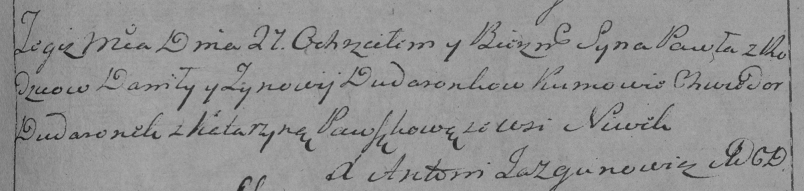 Tegoż Mca Dnia 27. Ochrzciłem y Bierzm Syna Pawła z Ro
dzicow Daniły y Zynowij Dudaronkow Kumowie Chwiedor
Dudaronek z Kataryną ze wsi Niwek
X Antoni Jazgunowicz